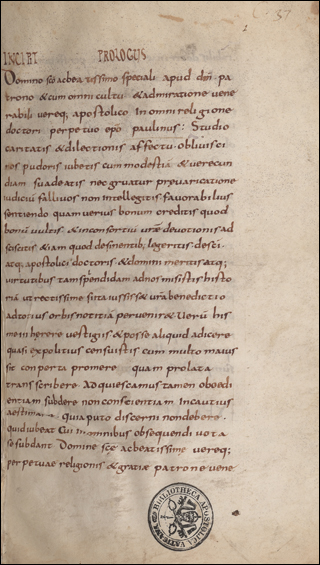 INCIPT PROLOGUS
Domino sce acbeatissimo speciali apud dm pa
trono & cum omni cultu & admiratione vene
rabili vereq; apostolico In omni religione
doctori perpetuo epo paulinus: Studio
caritatis & dilectionis affectu oblivisci
nos pudoris iubetis cum modestia & verecun
diam suadeatis ne gruatur prevaricatione
iudiciu fallivos non intellegitis favorabilius
sentiendo quam verius bonum creditis quod
boni vultis & in consortiu devotionis ad
sciscitis & iam quod desinentib, legeritis desci
atq, apostolici doctoris & domini meritis atq;
virtutibus tam splendidam ad nos misistis histo
ria ut rectissime sicta iussisse & benedictio
notitia pervenire & Veru his
me inherere vestigiis & posse aliquid adicere
quasi expolitius censuistis cum multo maius
sit comperta promere quam prolata
transcribere Adquiescamus tamen oboedi
entiam subdere non conscientiam Incautius
aestimans quia puto discerni non debere
quid iubeat Cui in omnibus obsequendi vota
se subdant Domine sce acbeatissime vereq;
perpetuae religionis & gratiae patrone vene
BIBLIOTHECA APOSTOLICA VATICANA